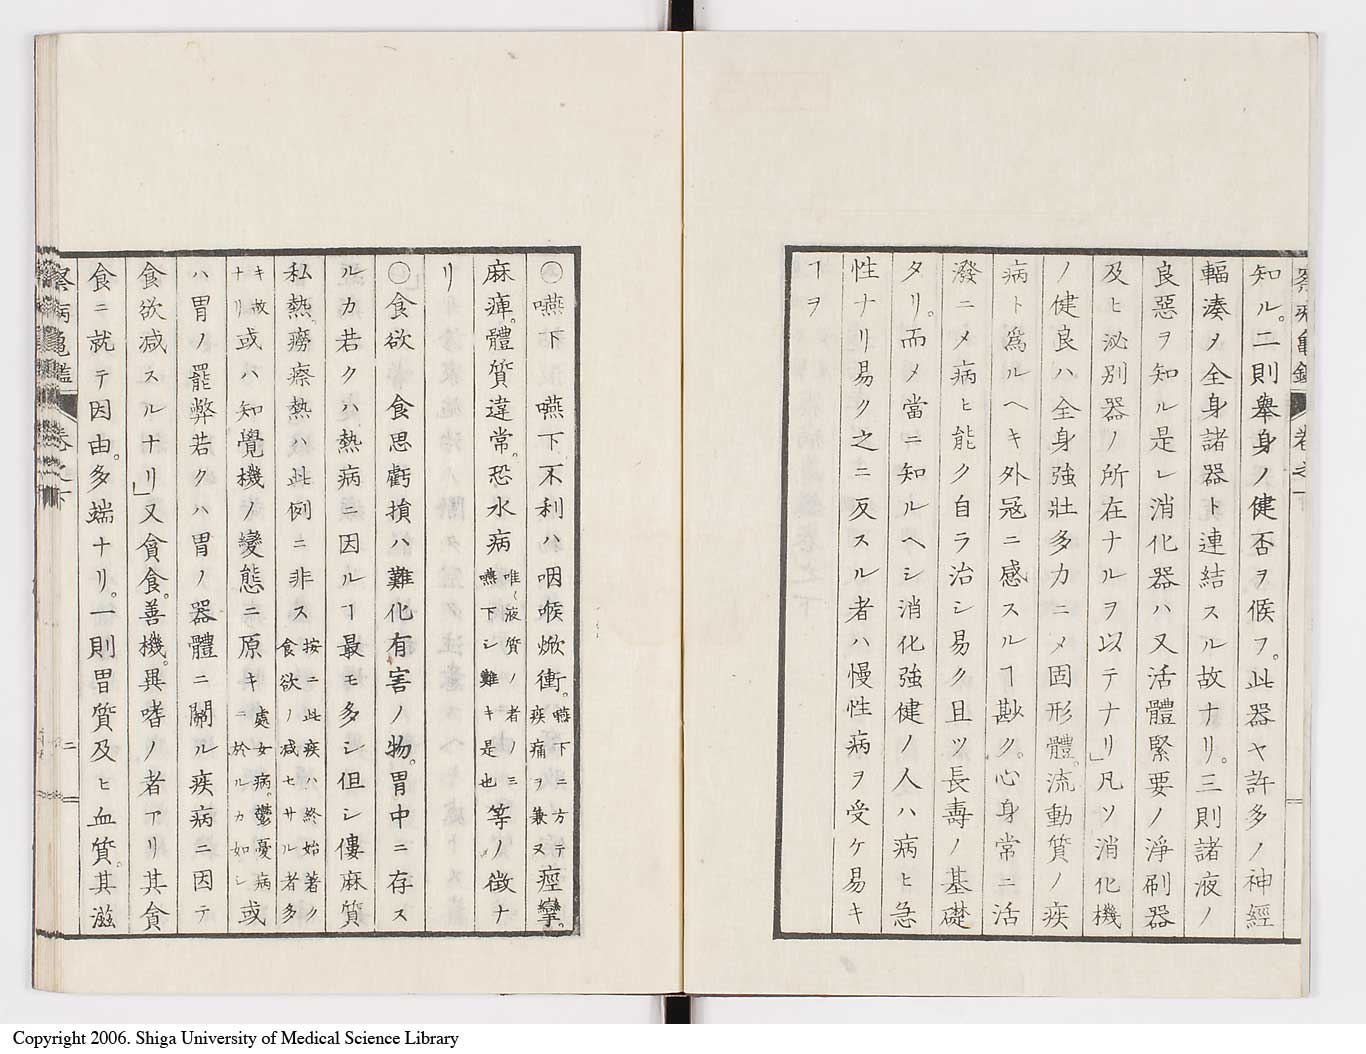 知ル。二則舉身ノ健否ヲ候フ。此器ヤ許多ノ神經
輻湊〆全身諸器ト連結スル故ナリ。三則諸液ノ
良惡ヲ知ル是レ消化器ハ又活體緊要ノ淨刷器
及ヒ泌別器ノ所在ナルヲ以テナリ」凡ソ消化機
ノ健良ハ全身強壯多力ニ〆固形體。流動質ノ疾
病ト爲ルヘキ外冦ニ感スルヿ尠ク。心身常ニ活
潑ニ〆病ヒ能ク自ラ治シ易ク且ツ長壽ノ基礎
タリ。而〆當ニ知ルヘシ消化強健ノ人ハ病ヒ急
性ナリ易ク之ニ反スル者ハ慢性病ヲ受ケ易キ
ヿヲ
〇嚥下 嚥下不利ハ咽喉焮衝。嚥下ニ方テ疾痛ヲ兼又痙攣。
麻痺。體質違常。恐水病唯液質ノ者ノミ嚥下シ難キ是也等ノ徴ナ
リ
〇食欲 食思虧損ハ難化有害ノ物。胃中ニ存ス
ルカ若クハ熱病ニ因ルヿ最モ多シ但シ僂麻質
私熱。癆瘵熱ハ此例ニ非ス按ニ此疾ハ終始著ク食欲ノ減セサル者多
キ故ナリ或ハ知覺機ノ變態ニ原キ處女病。鬱憂病ニ於ルカ如シ或
ハ胃ノ罷弊若クハ胃ノ器體ニ關ル疾病ニ因テ
食欲减スルナリ」又貪食。善機。異嗜ノ者アリ其貪
食ニ就テ因由。多端ナリ。一則胃質及ヒ血質。其滋
察病龜鑑 卷之下
二
Copyright 2006. Shiga University of Medical Science Library